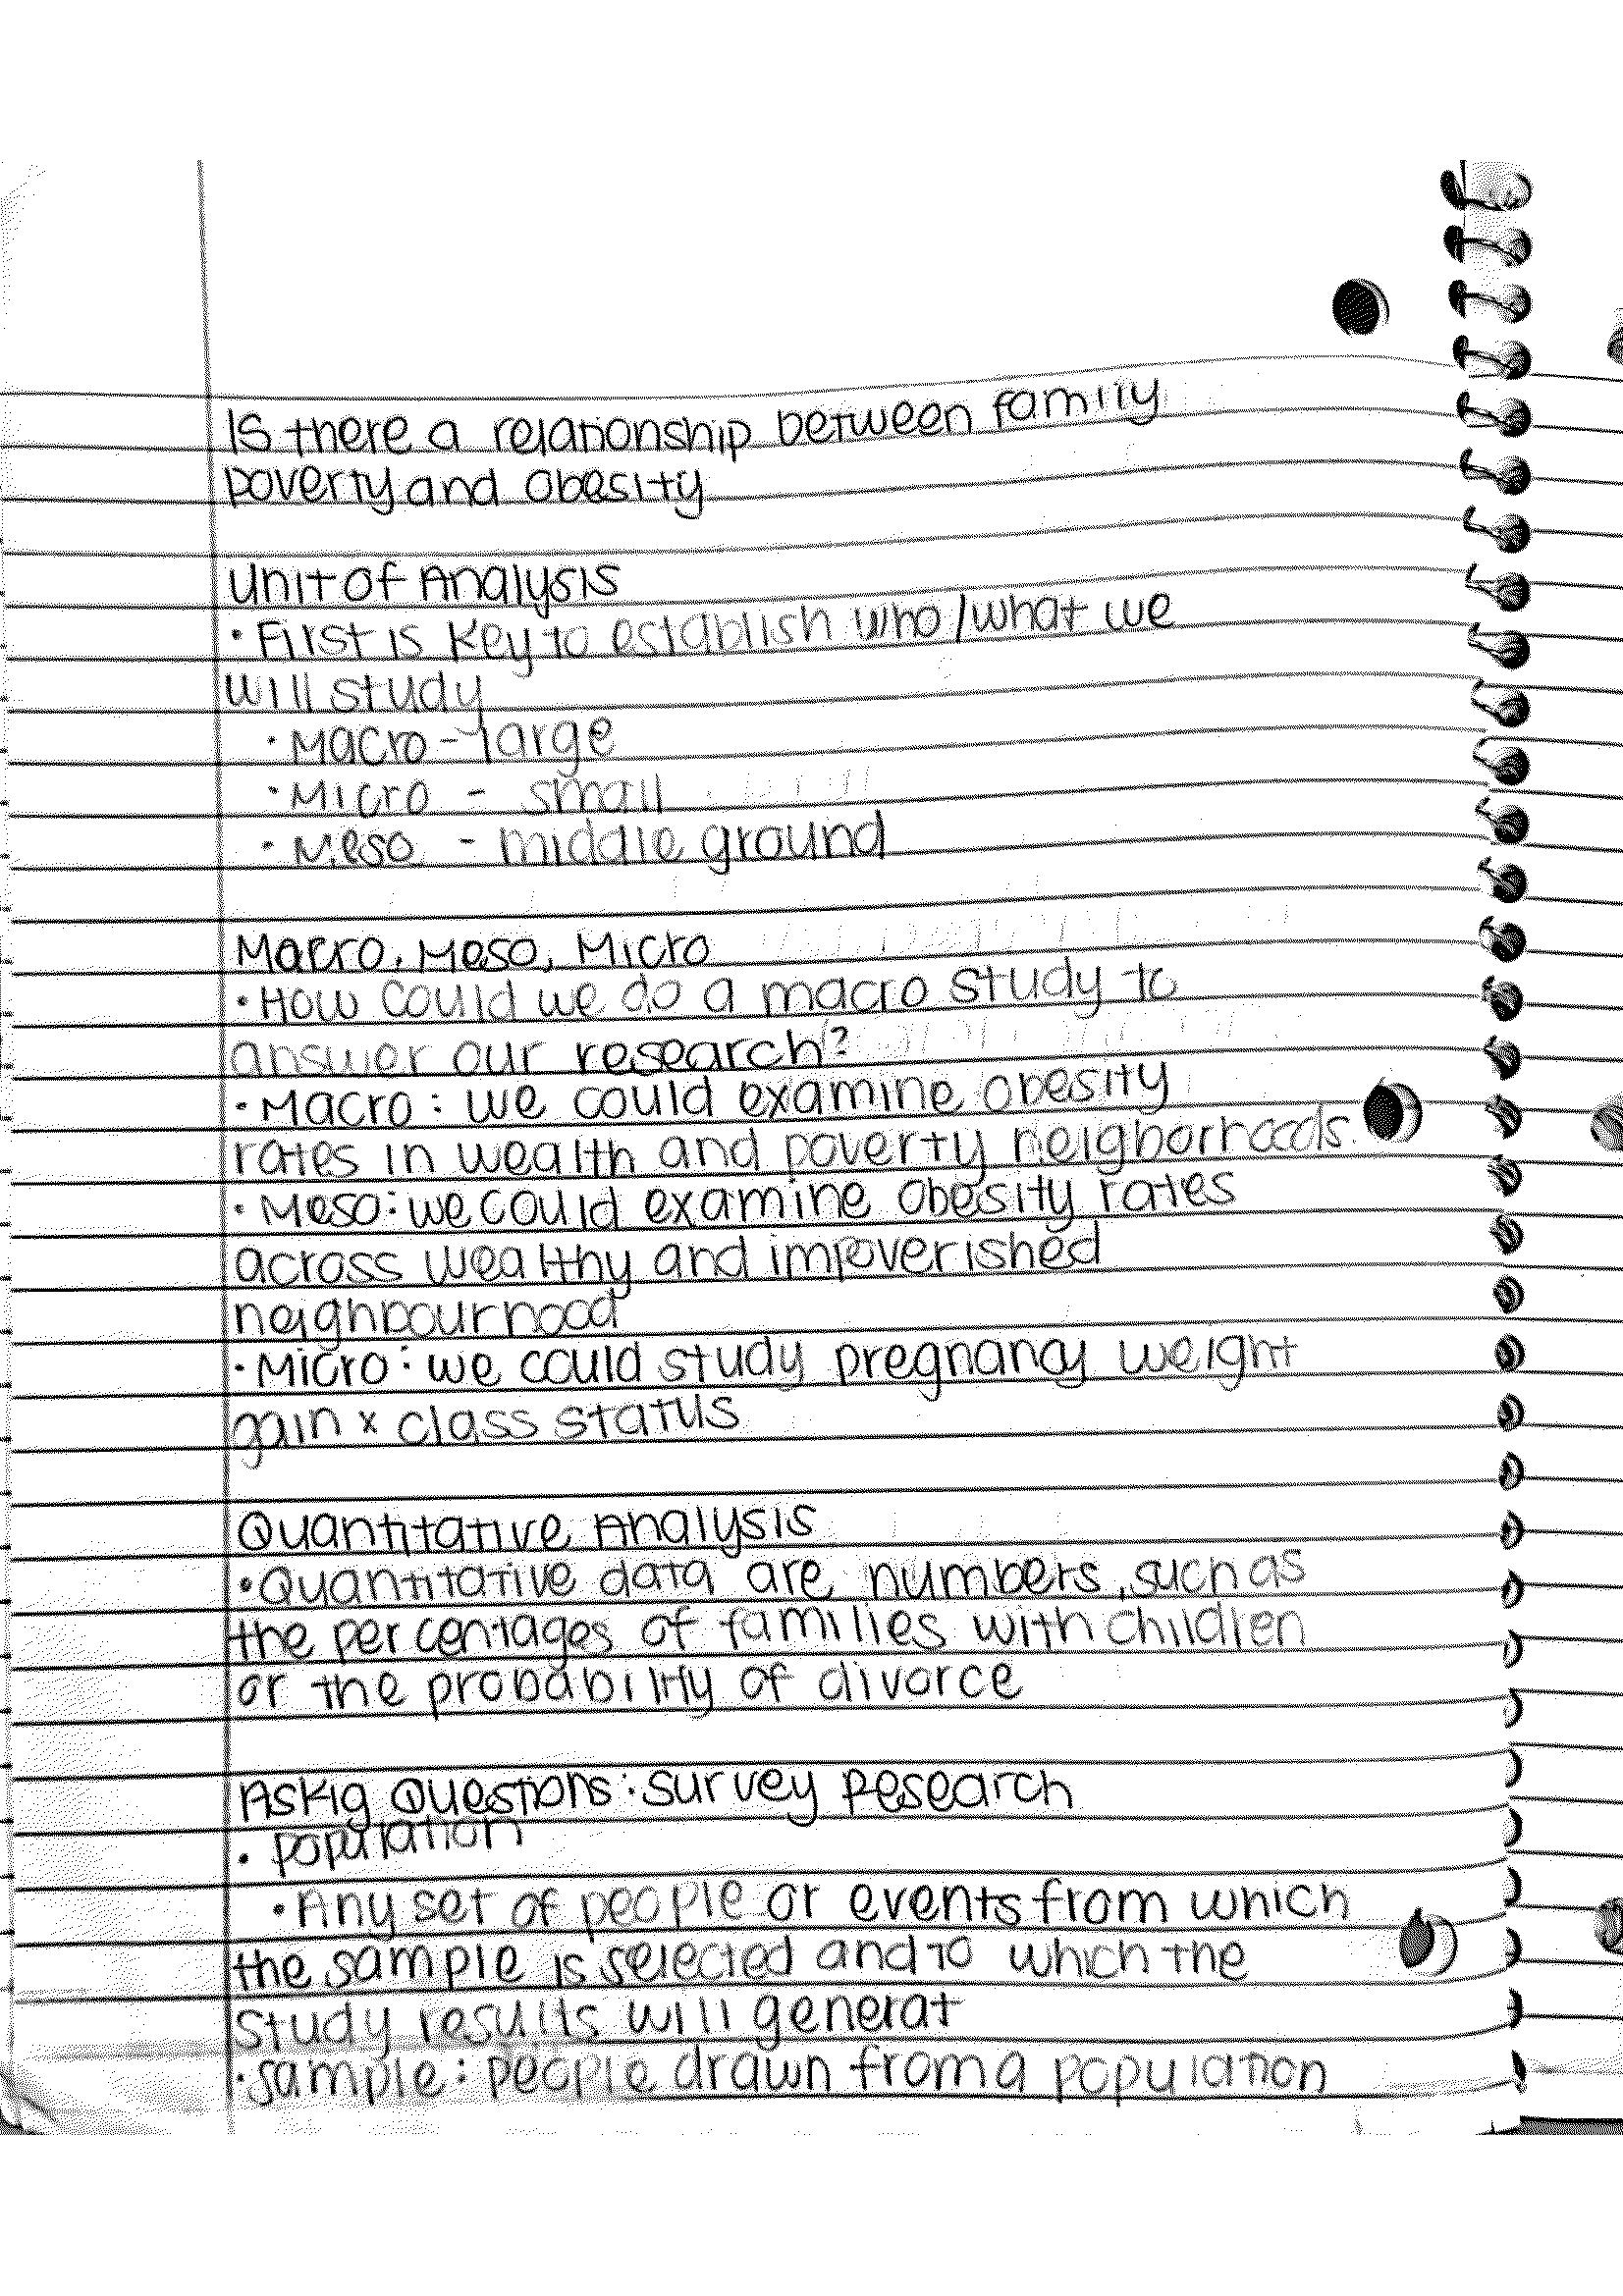 Is there a relationship between family
poverty and obesity
Unit of Analysis
• First is key to establish who/what we
will study
• Macro - large
• Micro - small
• Meso - middle ground
Macro, Meso, Micro
• How could we do a macro study to
answer our research?
• Macro: we could examine obesity
rates in wealth and poverty neighborhoods.
• Meso: we could examine obesity rates
across wealthy and impoverished
neighbourhood
• Micro: we could study pregnancy weight
gain x class status
Quantitative Analysis
• Quantitative data are numbers, such as
the percentages of families with children
or the probability of divorce
Askig Questions: survey Research
• population
• Any set of people or events from which
the sample is selected and to which the
study results will generat
• sample: people drawn from a population